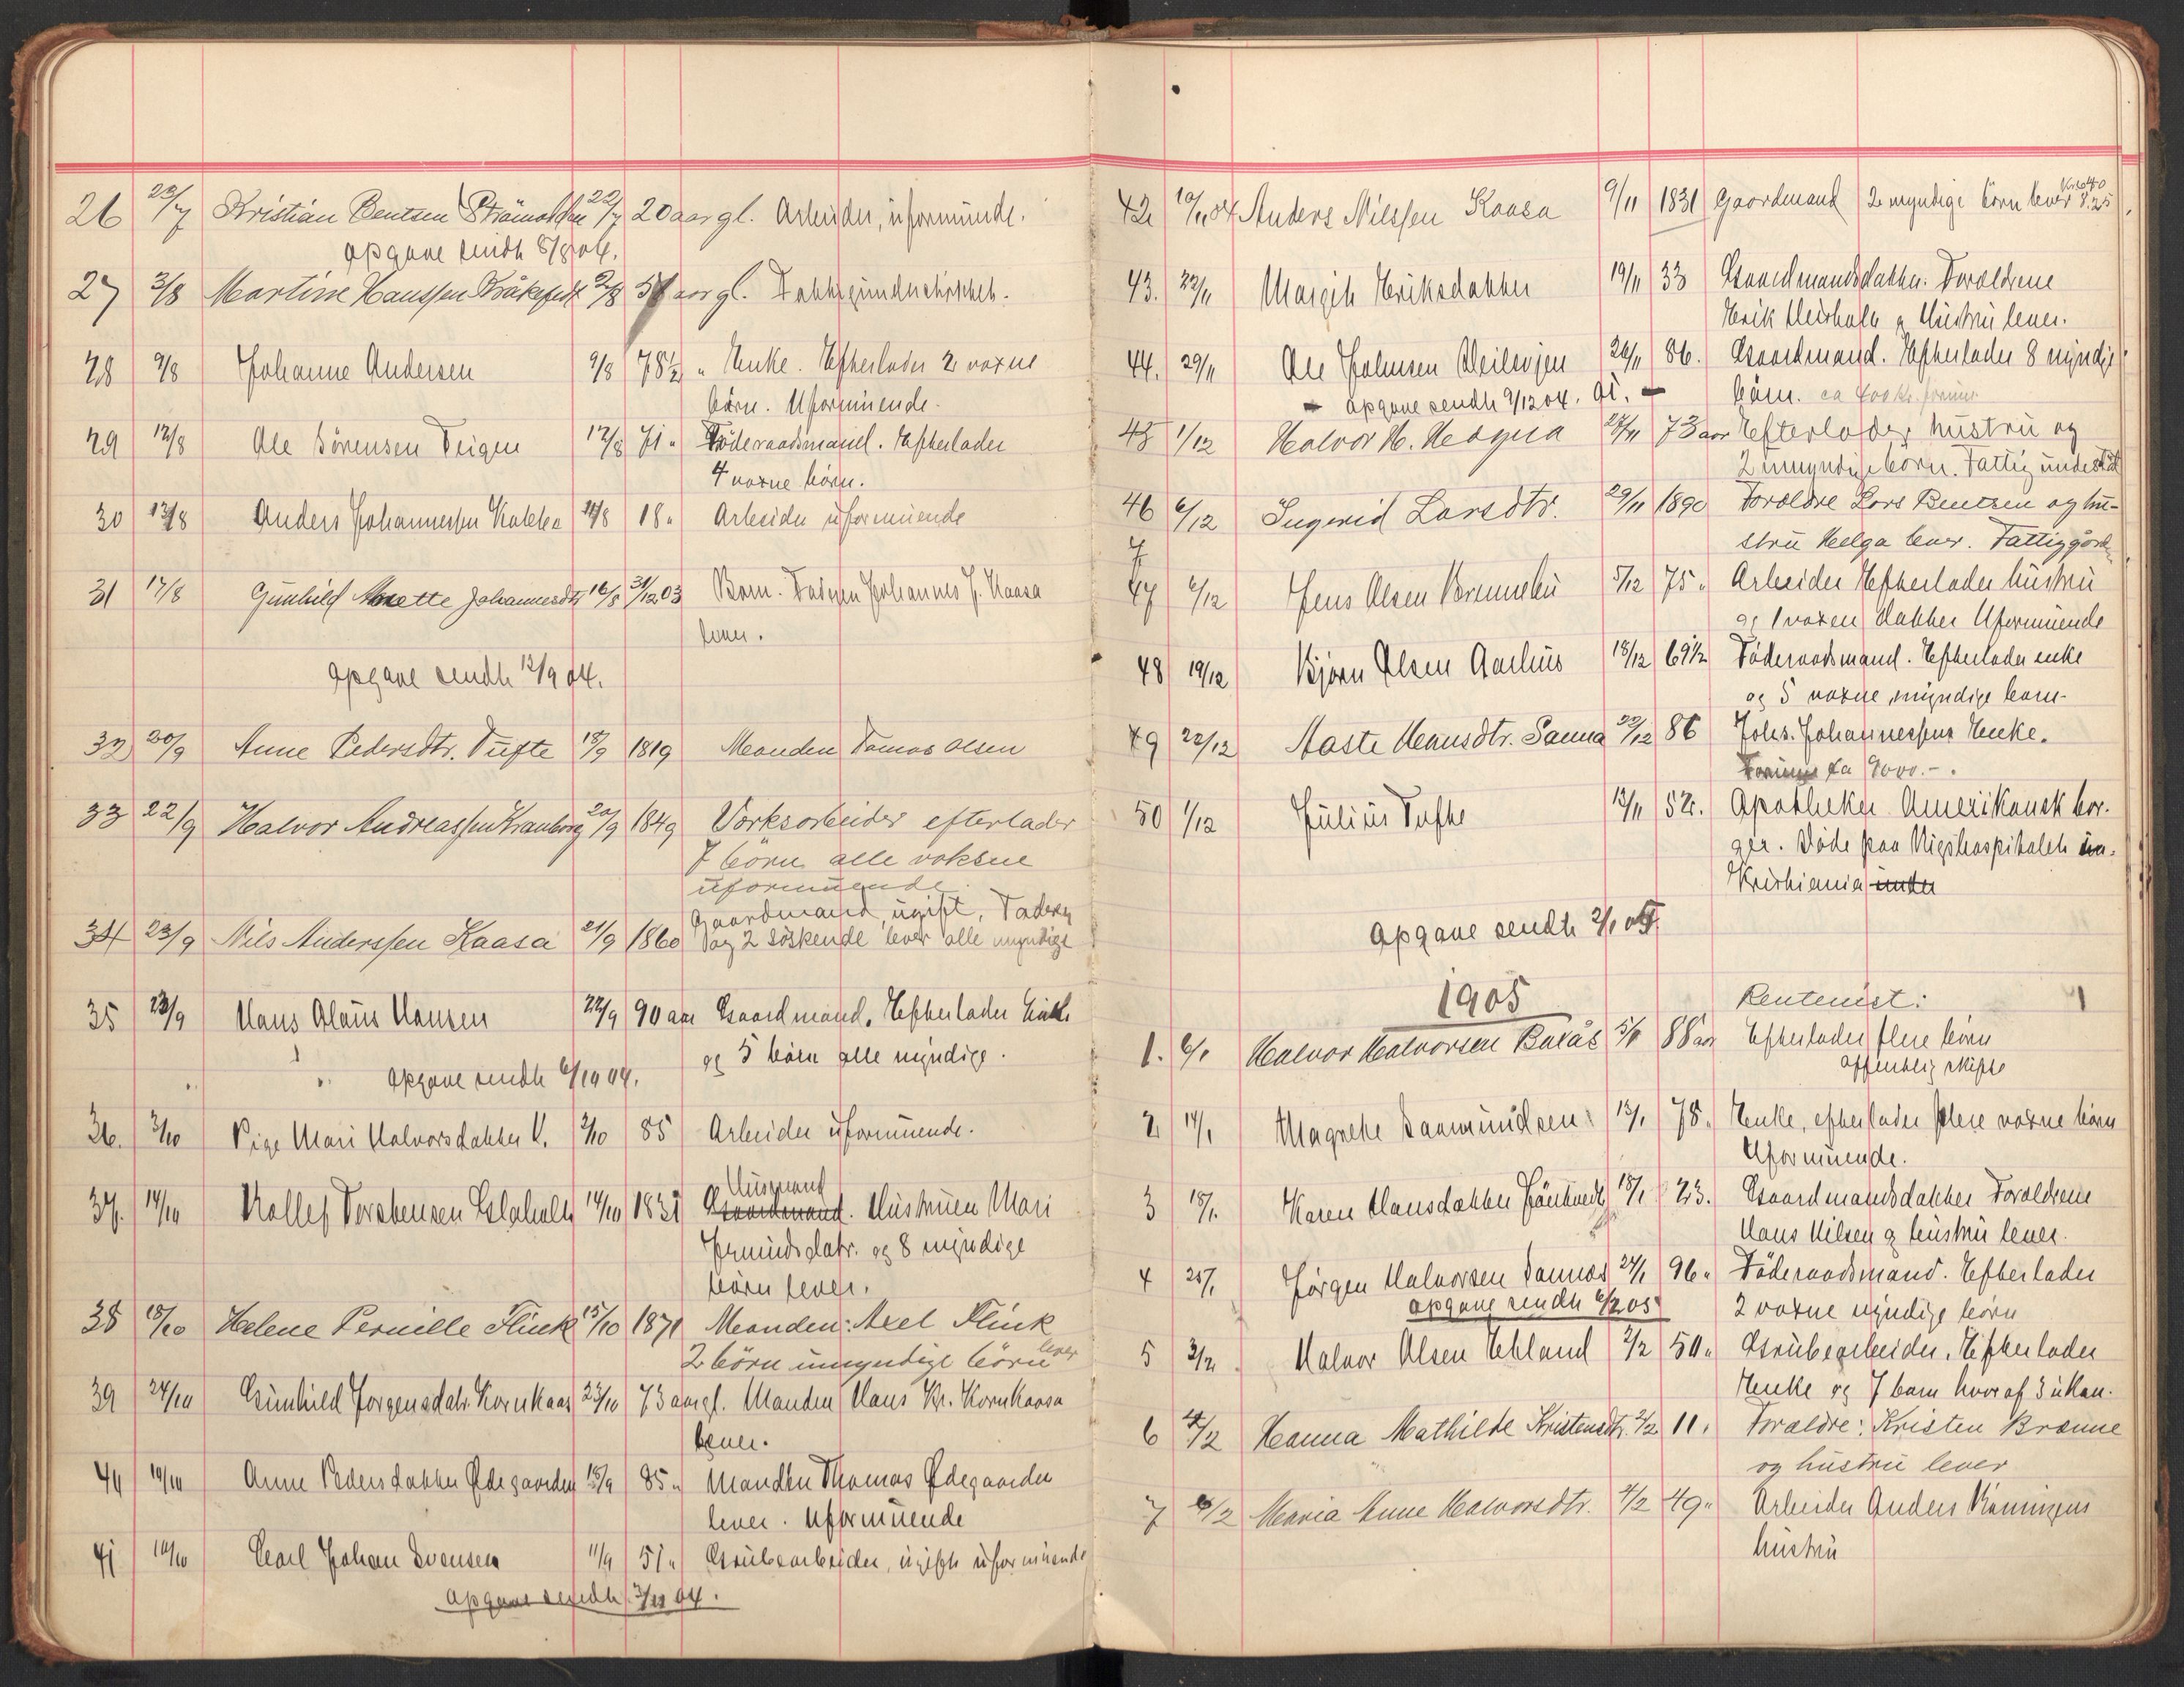 26 23/7 Kristian Bentsen Strømodden 22/7 20 aar gl. Arbeider, uformuende.
Opgave sendt 8/8 04.
27 3/8 Martine Hanssen 2/8 aar gl. Fattigunderstøttet.
28 9/8 Johanne Andersen 9/8 78½ " Enke. Efterlader 2 voxne
børn. Uformuende.
29 12/8 Ole Sørensen Teigen 12/8 71 " Føderaadsmand. Efterlader
4 voxne børn.
30 12/8 Anders Johannessen 18 " Arbeider uformuende
31 17/8 Gunhild Anette Johannesdtr 16/8 31/12 03 Barn. Faderen Johannes J. Kaasa
lever.
Opgave sendt 12/9 04.
32 20/9 Anne Pedersdtr. Tufte 18/9 1819 Manden Tomas Olsen
33 22/9 Halvor Andreassen Kranborg 20/9 1849 Værksarbeider efterlader
7 børn alle voksne
uformuende.
34 23/9 Nils Anderssen Kaasa 21/9 1860 Gaardmand, ugift, Faderen
og 2 søskende lever alle myndige
35 23/9 Hans Olaus Hansen 22/9 90 aar Gaardmand. Efterlader Enke
og 5 børn alle myndige.
" " Opgave sendt 6/10 04.
36. 3/10 Pige Mari Halvorsdatter V. 2/10 85 Arbeider uformuende.
37. 14/10 Rollef Torstensen 14/10 1831 Husmand
Gaardmand. Hustruen Mari
Jermundsdatr. og 8 myndige
børn lever.
38 18/10 Helene Pernille Flink 15/10 1871 Manden: Axel Flink
2 børn umyndige børn lever
39 24/10 Gunhild Jørgensdatr. Kornkaas 23/10 73 aar gl. Manden Hans Kr. Kornkaasa
lever.
40 10/10 Anne Pedersdatter Ødegaarden 18/9 85 " Manden Thomas Ødegaarden
lever. Uformuende
41 10/10 Carl Johan Svensen 11/9 51 " Grubearbeider, ugift uformuende
Opgave sendt 3/11 04.
42 10/11 04 Anders Nilssen Kaasa 9/11 1831 Gaardmand 2 myndige børn lever
43. 22/11 Margit Eriksdatter 19/11 33 Gaardmandsdatter. Forældrene
Erik og Hustru lever.
44. 29/11 Ole Johnsen 26/11 86. Gaardmand. Efterlader 8 myndige
Opgave sendt 9/12 04. børn. ca 400 kr.
45 1/12 Halvor H. Hegna 27/11 73 aar Efterlader hustru og
2 umyndige børn. Fattigunderstøt
46 6/12 Ingerid Larsdtr. 29/11 1890 Forældre Lars Bentsen og hu-
stru Helga lever.
47 6/12 Jens Olsen Brennebu 5/12 75 " Arbeider Efterlader hustru
og 1 voxen datter Uformuende
48 19/12 Bjørn Olsen Aarhus 18/12 69½ Føderaadsmand. Efterlader enke
og 5 voxne myndige barn.
49 22/12 Aaste Hansdtr. Sanna 22/12 86 Johs. Johannessens Enke.
Formue ca 9000.-.
50 1/12 Julius Tufte 13/11 52. Apotheker Amerikansk bor-
ger. Døde paa Rigshospitalet
Kristiania under
Opgave sendt 2/1 05.
1905
Rentenist: 1
1. 6/1 Halvor Halvorsen Bakås 5/1 88 aar Efterlader flere børn
offentlig skifte
2 14/1 Magrete Saamundsen 13/1 78. Enke, efterlader flere voxne børn
Uformuende.
3 18/1. Karen Hansdatter 18/1 23. Gaardmandsdatter Forældrene
Hans Nilsen og hustru lever.
4 25/1. Jørgen Halvorsen Sannes 24/1 96 " Føderaadsmand. Efterlader
Opgave sendt 6/2 05 2 voxne myndige børn
5 3/2 Halvor Olsen Ekland 2/2 50 " Grubearbeider. Efterlader
Enke og 7 barn hvoraf 3 i
6 4/2 Hanna Mathilde Kristensdtr. 2/2 11. Forældre: Kristen Brænne
og hustru lever
7 6/2 Maria Anne Halvorsdtr. 4/2 49 " Arbeider Anders
hustru